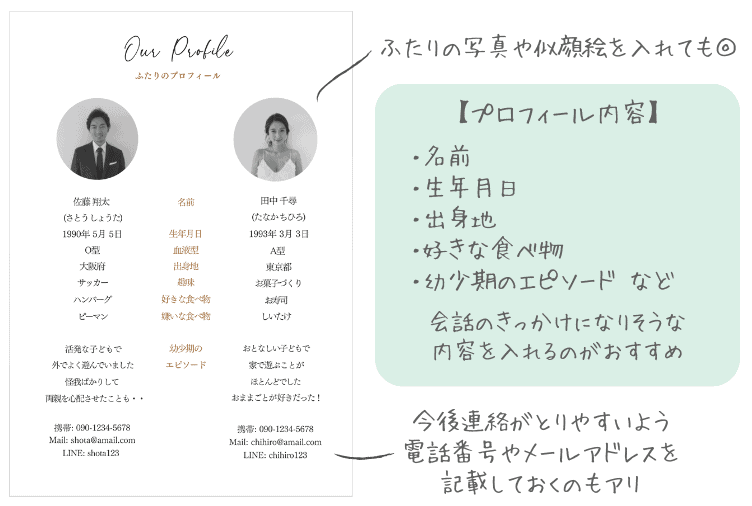 Our Profile
ふたりのプロフィール
佐藤 翔太 名前 田中 千尋
(さとうしょうた) (たなかちひろ)
1990年 5月 5日 生年月日 1993年 3月 3日
O型 血液型 A型
大阪府 出身地 東京都
サッカー 趣味 お菓子づくり
ハンバーグ 好きな食べ物 お寿司
ピーマン 嫌いな食べ物 しいたけ
活発な子どもで 幼少期の おとなしい子どもで
外でよく遊んでいました エピソード 家で遊ぶことが
怪我ばかりして ほとんどでした
両親を心配させたことも・・ おままごとが好きだった!
携帯: 090-1234-5678 携帯: 090-1234-5678
Mail: shota@amail.com Mail: chihiro@amail.com
LINE: shota123 LINE: chihiro123
ふたりの写真や似顔絵を入れても◎
【プロフィール内容】
・名前
・生年月日
・出身地
・好きな食べ物
・幼少期のエピソード など
会話のきっかけになりそうな
内容を入れるのがおすすめ
今後連絡がとりやすいよう
電話番号やメールアドレスを
記載しておくのもアリ